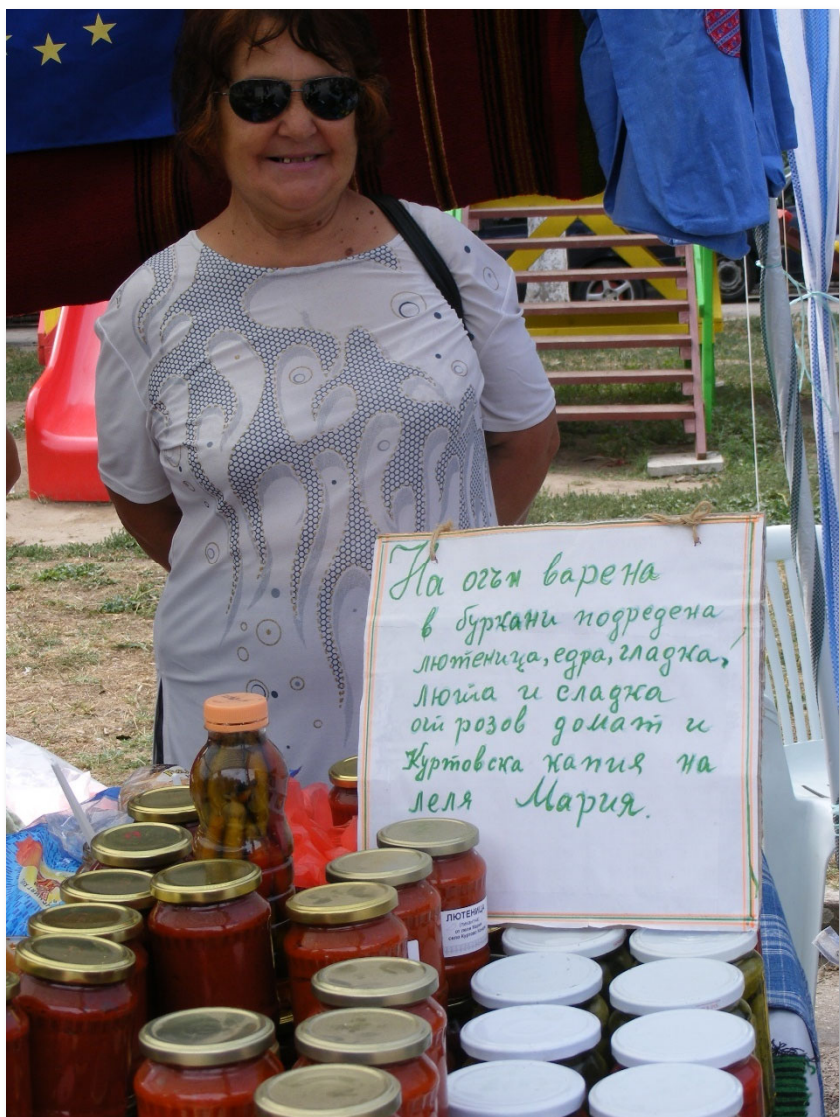 На огън варена
в буркани подредена
лютеница, едра, гладка,
люта и сладка
от розов домат и
Куртовска капия на
леля Мария.
ЛЮТЕНИЦА